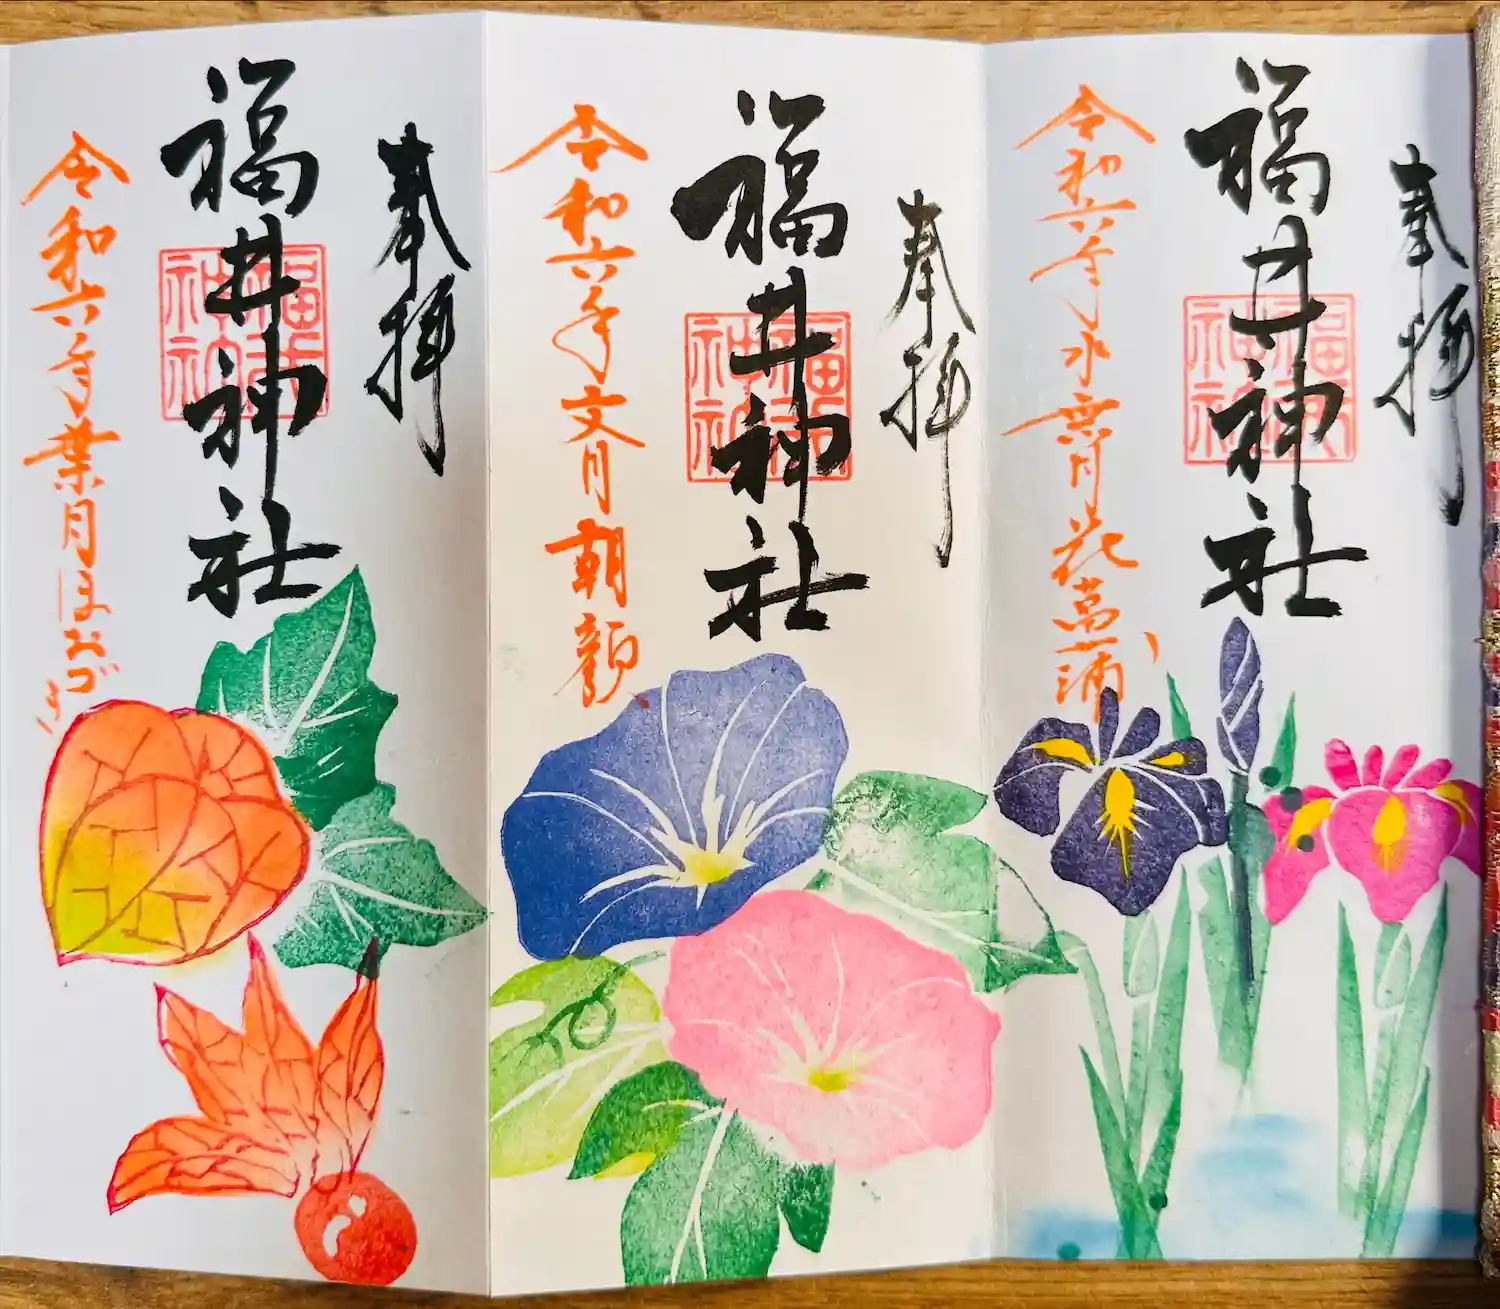 奉拝
福井神社
令和六年水無月花菖蒲
奉拝
福井神社
令和六年文月朝顔
奉拝
福井神社
令和六年葉月ほおづき
福井神社
福井神社
福井神社